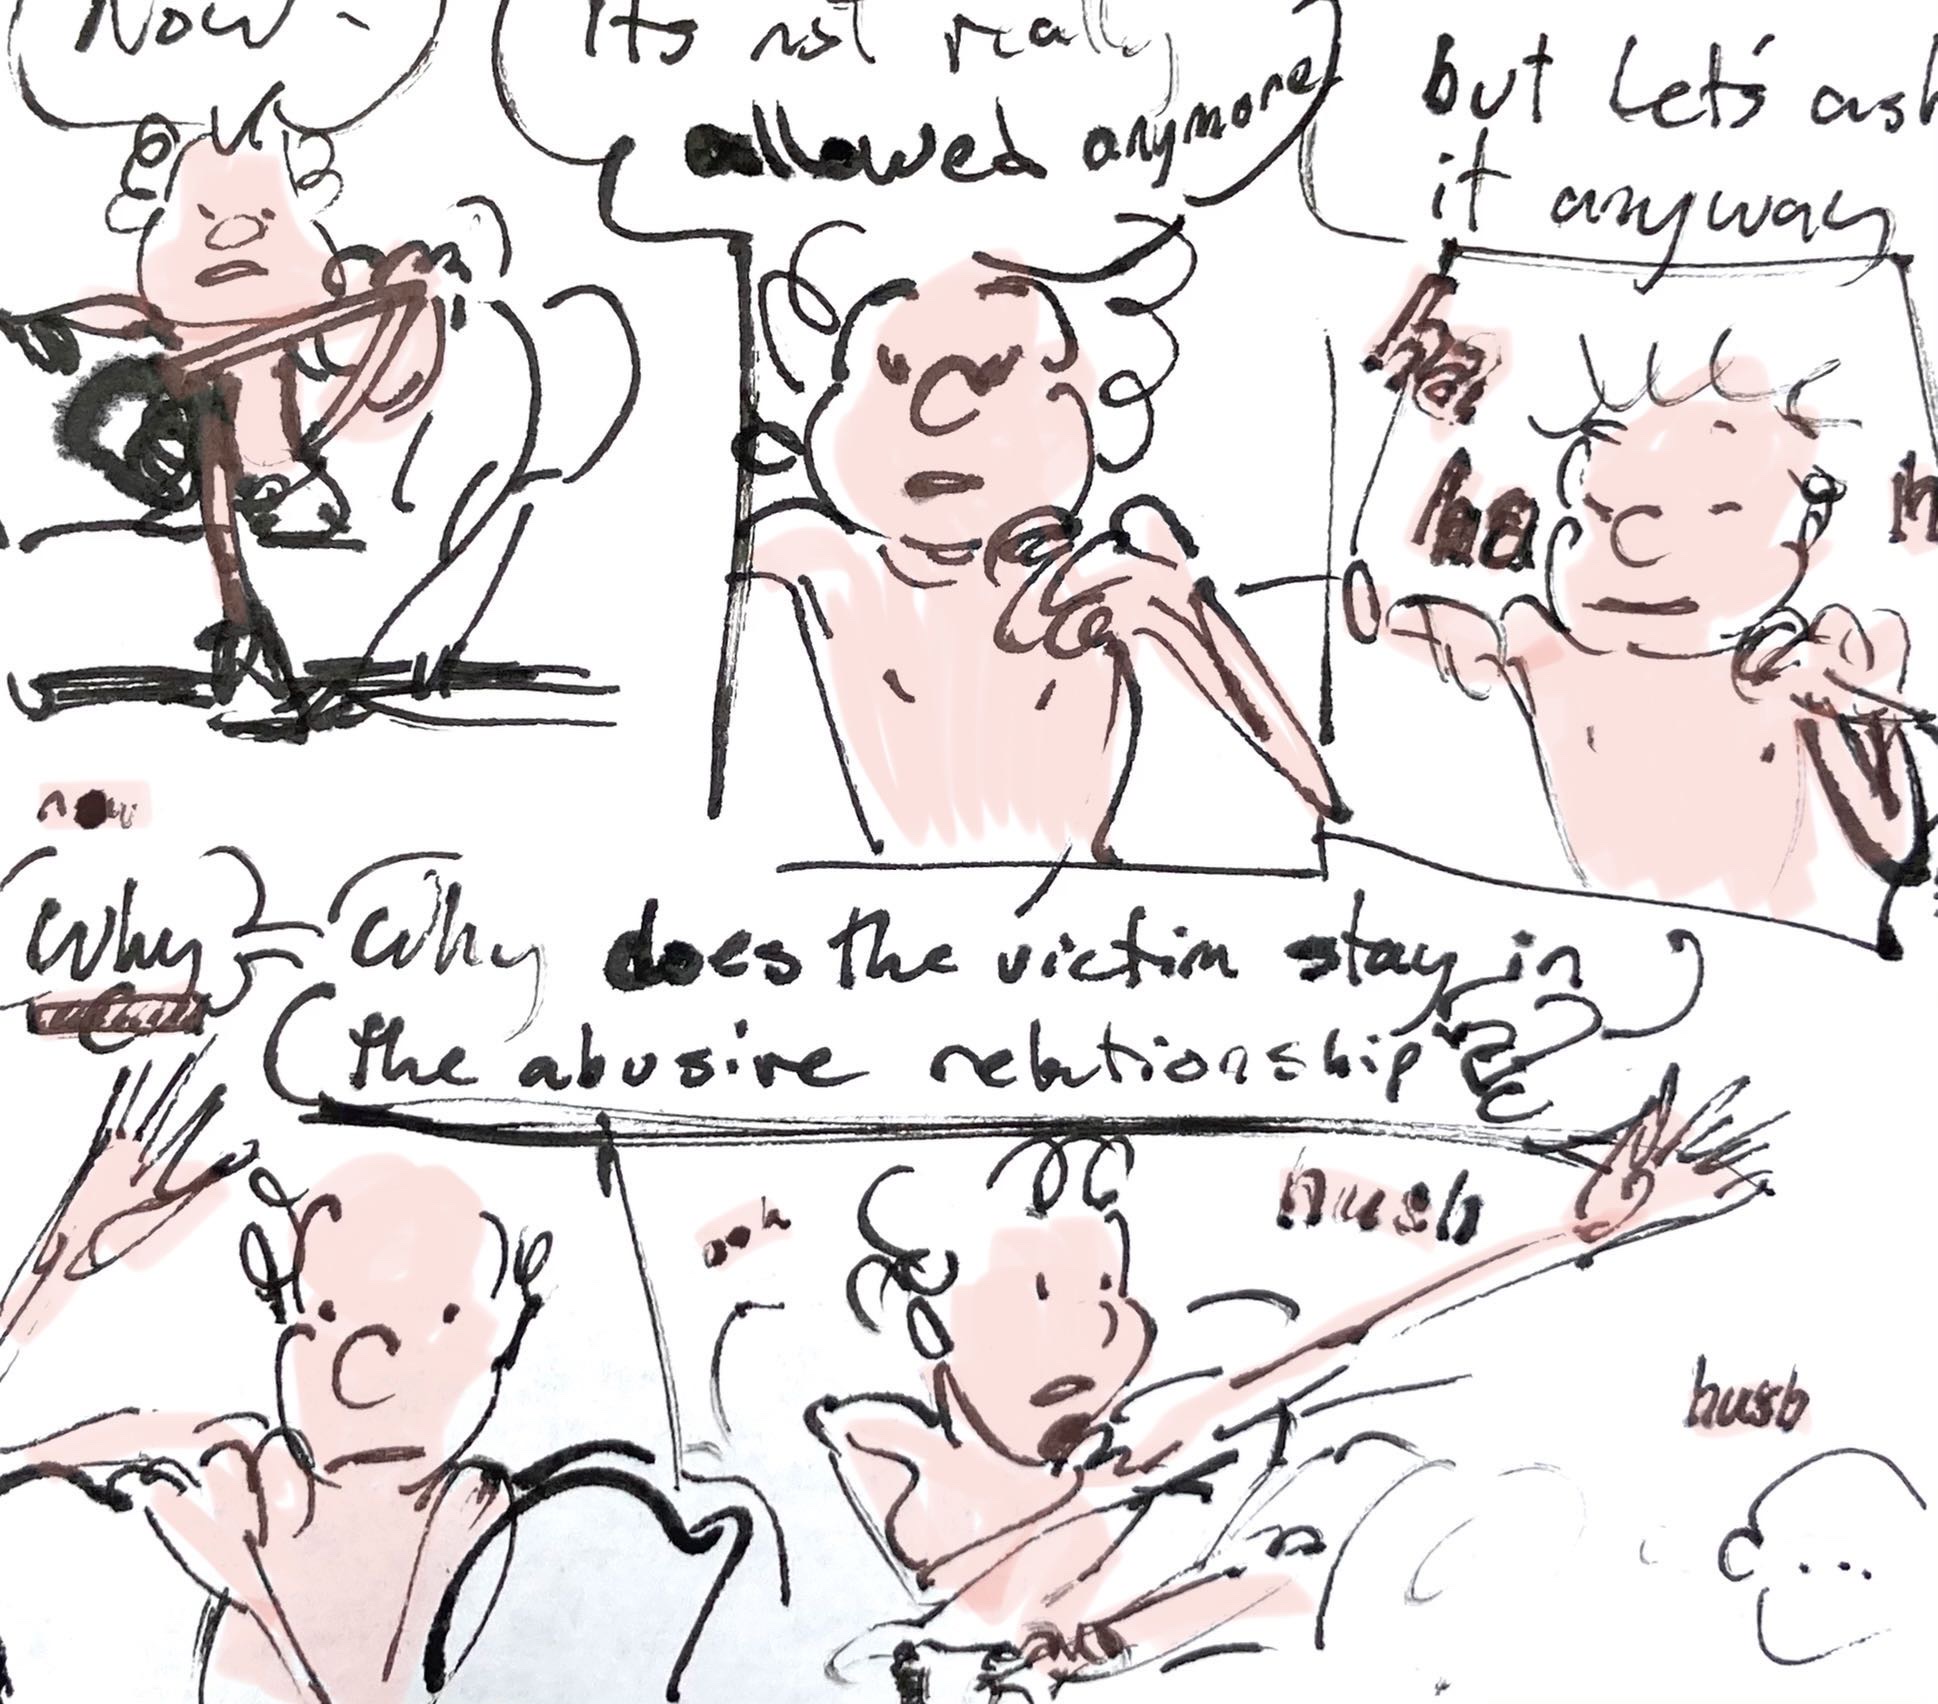 Now -
Its not really
allowed anymore
but Let's ask
it anyway
ha
ha
now
Why
Why does the victim stay in
the abusive relationship?
ooh
hush
hush
...